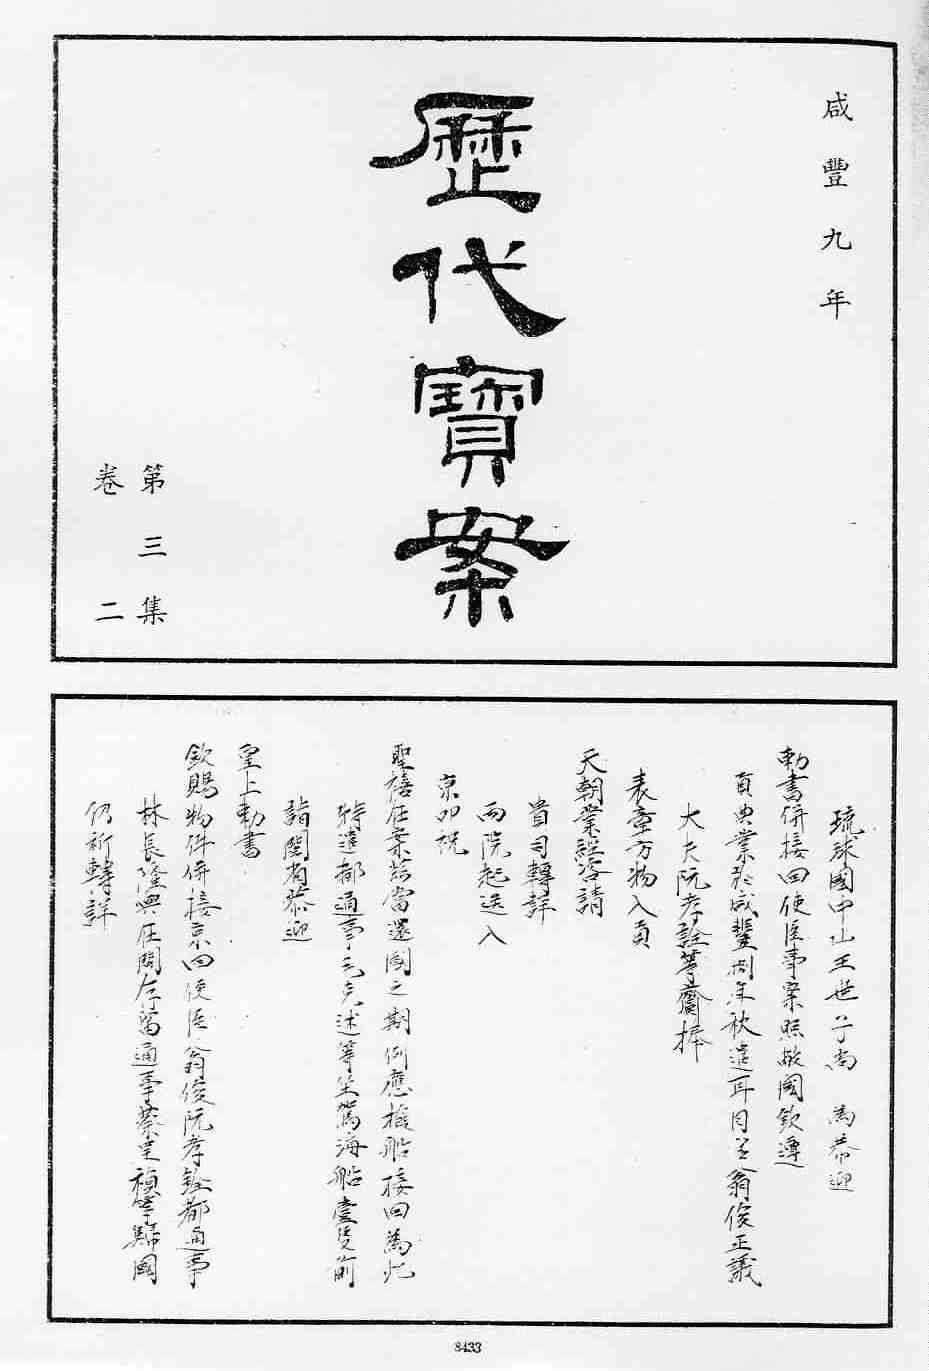 咸豐九年
歷代寶案
第三集
卷二
琉球國中山王世子尚 為恭迎
勅書併接回使臣事案照敝國欽遵
貢典業於咸豐捌年秋遣耳目官翁俊正議
大夫阮孝詮等齎捧
表章方物入貢
天朝業經咨請
貴司轉詳
兩院起送入
京叩祝
聖禧在案茲當還國之期例應撥船接回為此
特遣都通事 克述等坐駕海船壹隻前
詣閩省恭迎
皇上勅書
欽賜物件併接京回使臣翁俊阮孝銓都通事
林長隆與在閩存留通事蔡呈禎等歸國
仍祈轉詳
8433